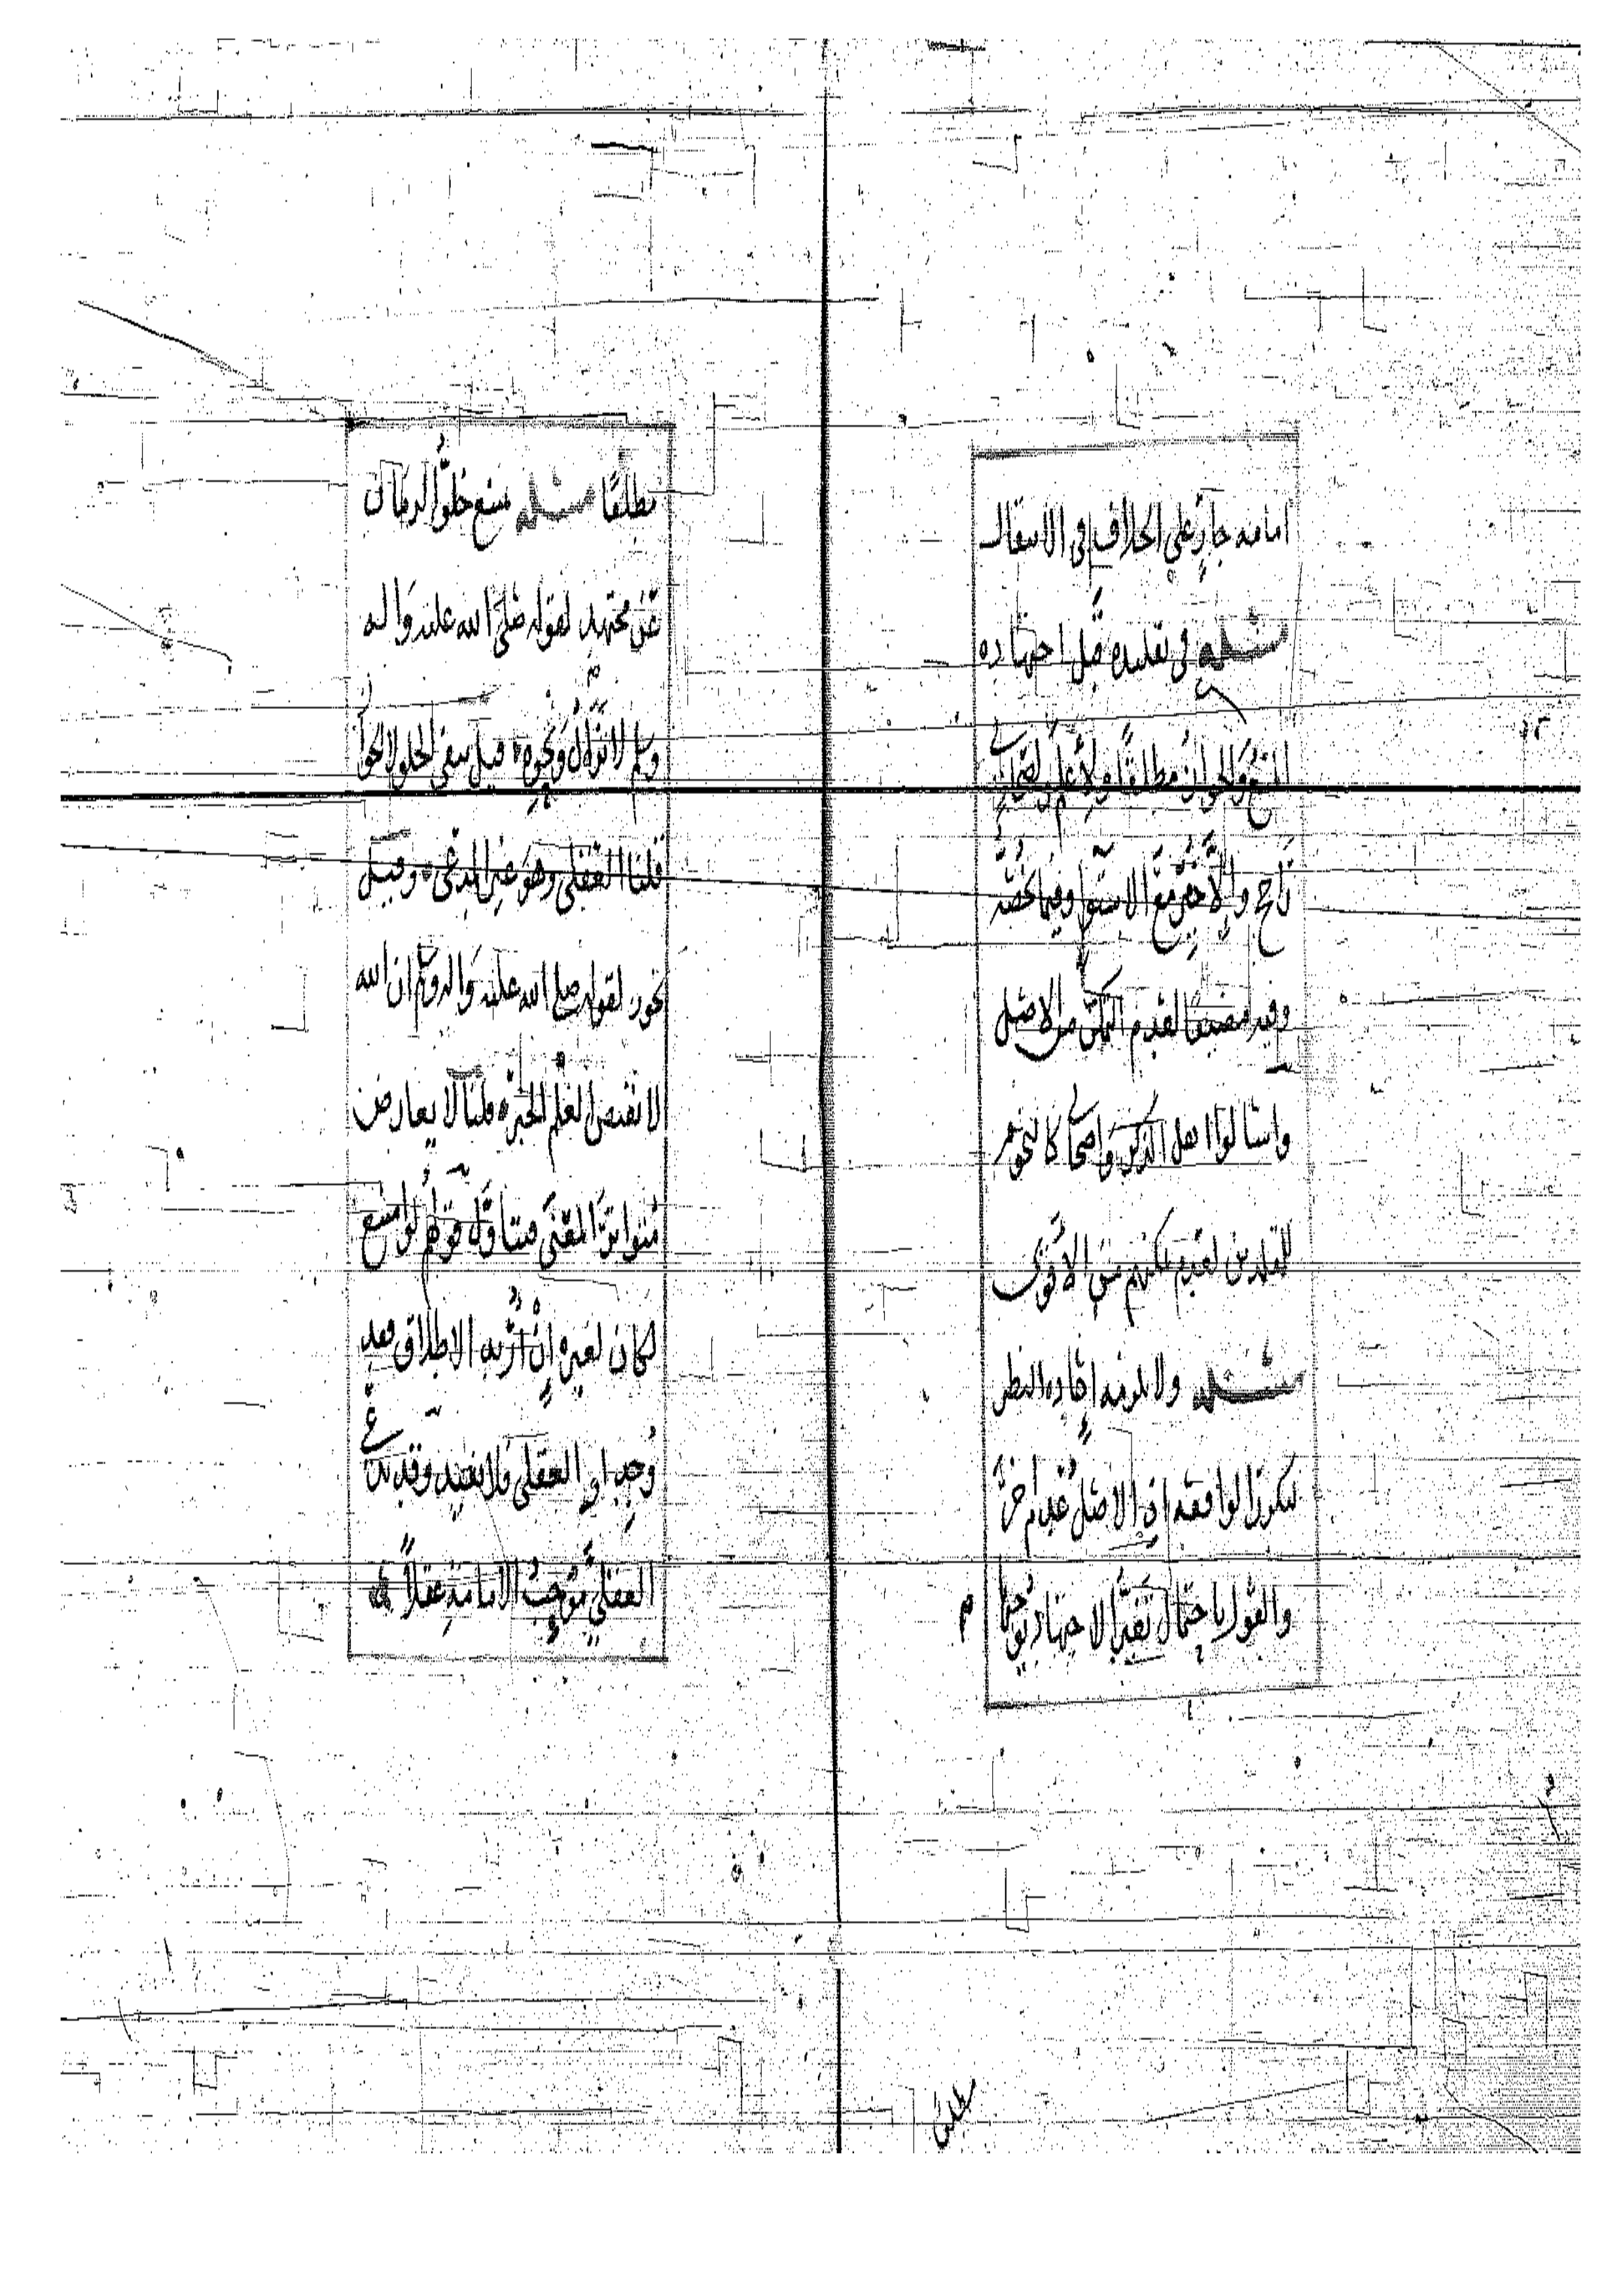 امامه جارٍ على الخلاف في الانتقال
مسئله في تقليده قبل اجتهاده
المنع والجواز مطلقًا ولأعلم لصحابي
راجح والا خير مع الاستوا وفيما يخصه
وفيه مضيقا لعدم التمكن من الاصل
واسألوا اهل الذكر واصحابي كالنجوم
للمقلدين لعدم تمكنهم من الاقوى
مسئله ولا يلزمه اعاده النظر
لتكرر الواقعه اذ الاصل عدم اخر
والقول باحتمال تغير الاجتهاد يوجبها
مطلقًا مسئله يمتنع خلو الزمان
عن مجتهد لقوله صلى الله عليه واله
وسلم لا تزال ونحوه قيل ينفي الخلو لا الجواز
قلنا العقلي وهو غير المدعى وقيل
يجوز لقوله صلى الله عليه واله وسلم ان الله
لا يقبض العلم الخبر قلنا لا يعارض
متواتر المعنى فيتأول قولهم لو امتنع
لكان لغيره إن أُريد الاطلاق فقد
وُجد او العقلي فلا يفيد وقد يدعي
العقلي موجب الامامة عقلاً